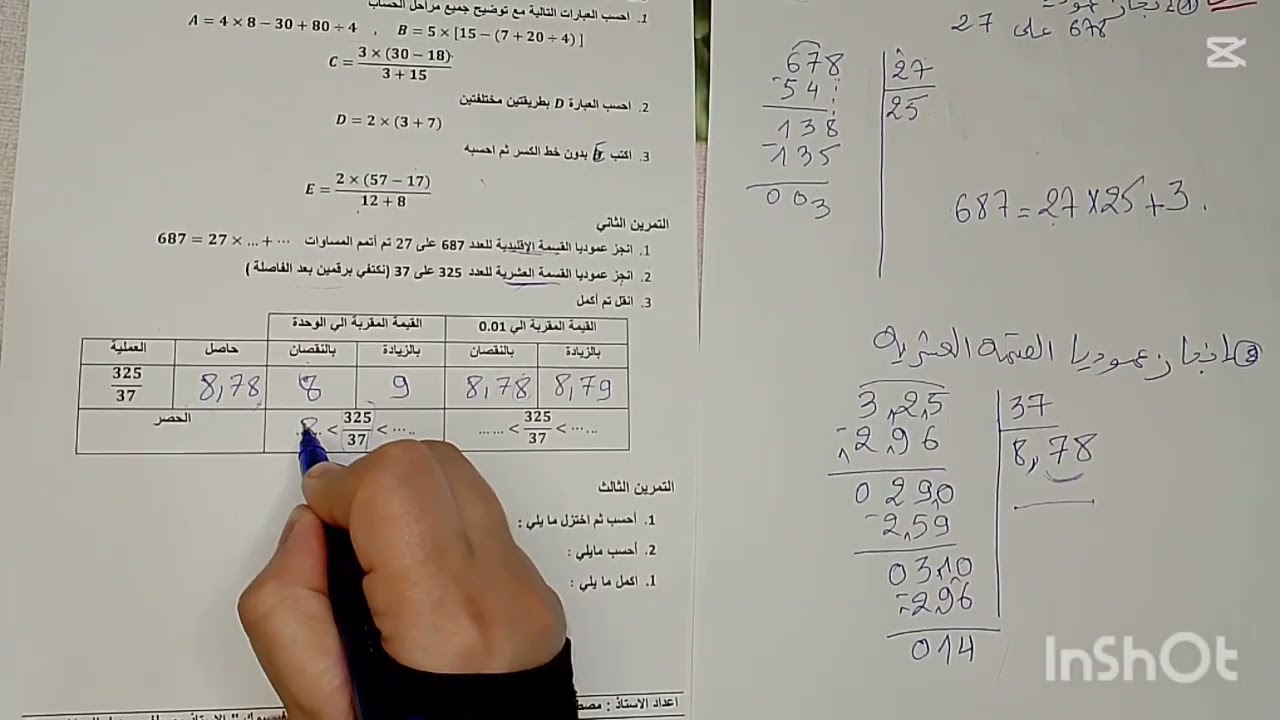 1. احسب العبارات التالية مع توضيح جميع مراحل الحساب
A = 4 × 8 − 30 + 80 ÷ 4 , B = 5 × [15 − (7 + 20 ÷ 4)]
C = \frac{3 × (30 − 18)}{3 + 15}
2. احسب العبارة D بطريقتين مختلفتين
D = 2 × (3 + 7)
3. اكتب E بدون خط الكسر ثم احسبه
E = \frac{2 × (57 − 17)}{12 + 8}
التمرين الثاني
1. انجز عموديا القسمة الإقليدية للعدد 687 على 27 ثم أتمم المساوات 687 = 27 × … + …
2. انجز عموديا القسمة العشرية للعدد 325 على 37 (نكتفي برقمين بعد الفاصلة )
3. انقل ثم أكمل
القيمة المقربة الي الوحدة القيمة المقربة الي 0.01
العملية حاصل بالنقصان بالزيادة بالنقصان بالزيادة
\frac{325}{37} 8,78 8 9 8,78 8,79
الحصر 8 < \frac{325}{37} < ….. …… < \frac{325}{37} < …...
التمرين الثالث
1. أحسب ثم اختزل ما يلي :
2. أحسب مايلي :
1. اكمل ما يلي :
اعداد الاستاذ :
678 على 27
678 27
-54 25
138
-135
003
687 = 27 × 25 + 3 .
انجاز عموديا القسمة العشرية
3,2,5 37
-296 8,78
0290
-259
0310
-296
014
InShOt